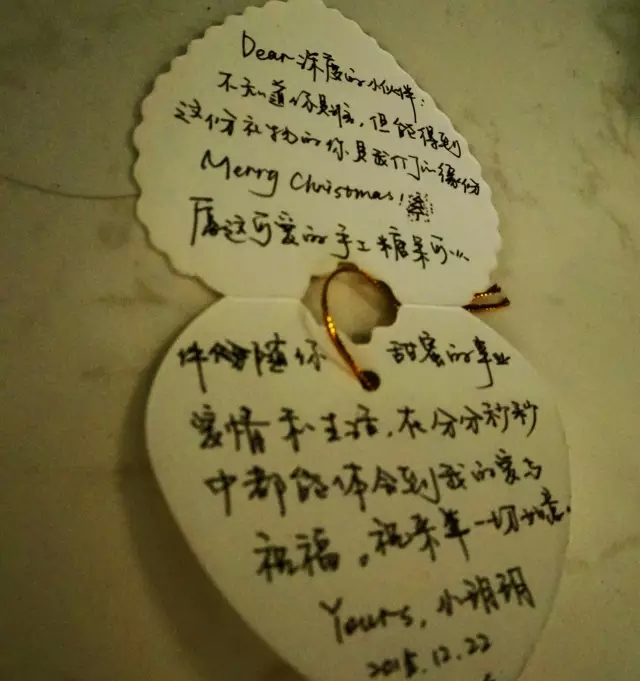 Dear 深度的小伙伴:
不知道你是谁,但能得到
这份礼物的你是我们的缘份
Merry Christmas!
愿这可爱的手工糖果可...
伴随你 甜蜜的事业
爱情和生活,在分分秒秒
中都能体会到我的爱与
祝福。祝来年一切如意.
Yours, 小玥玥
2015.12.22